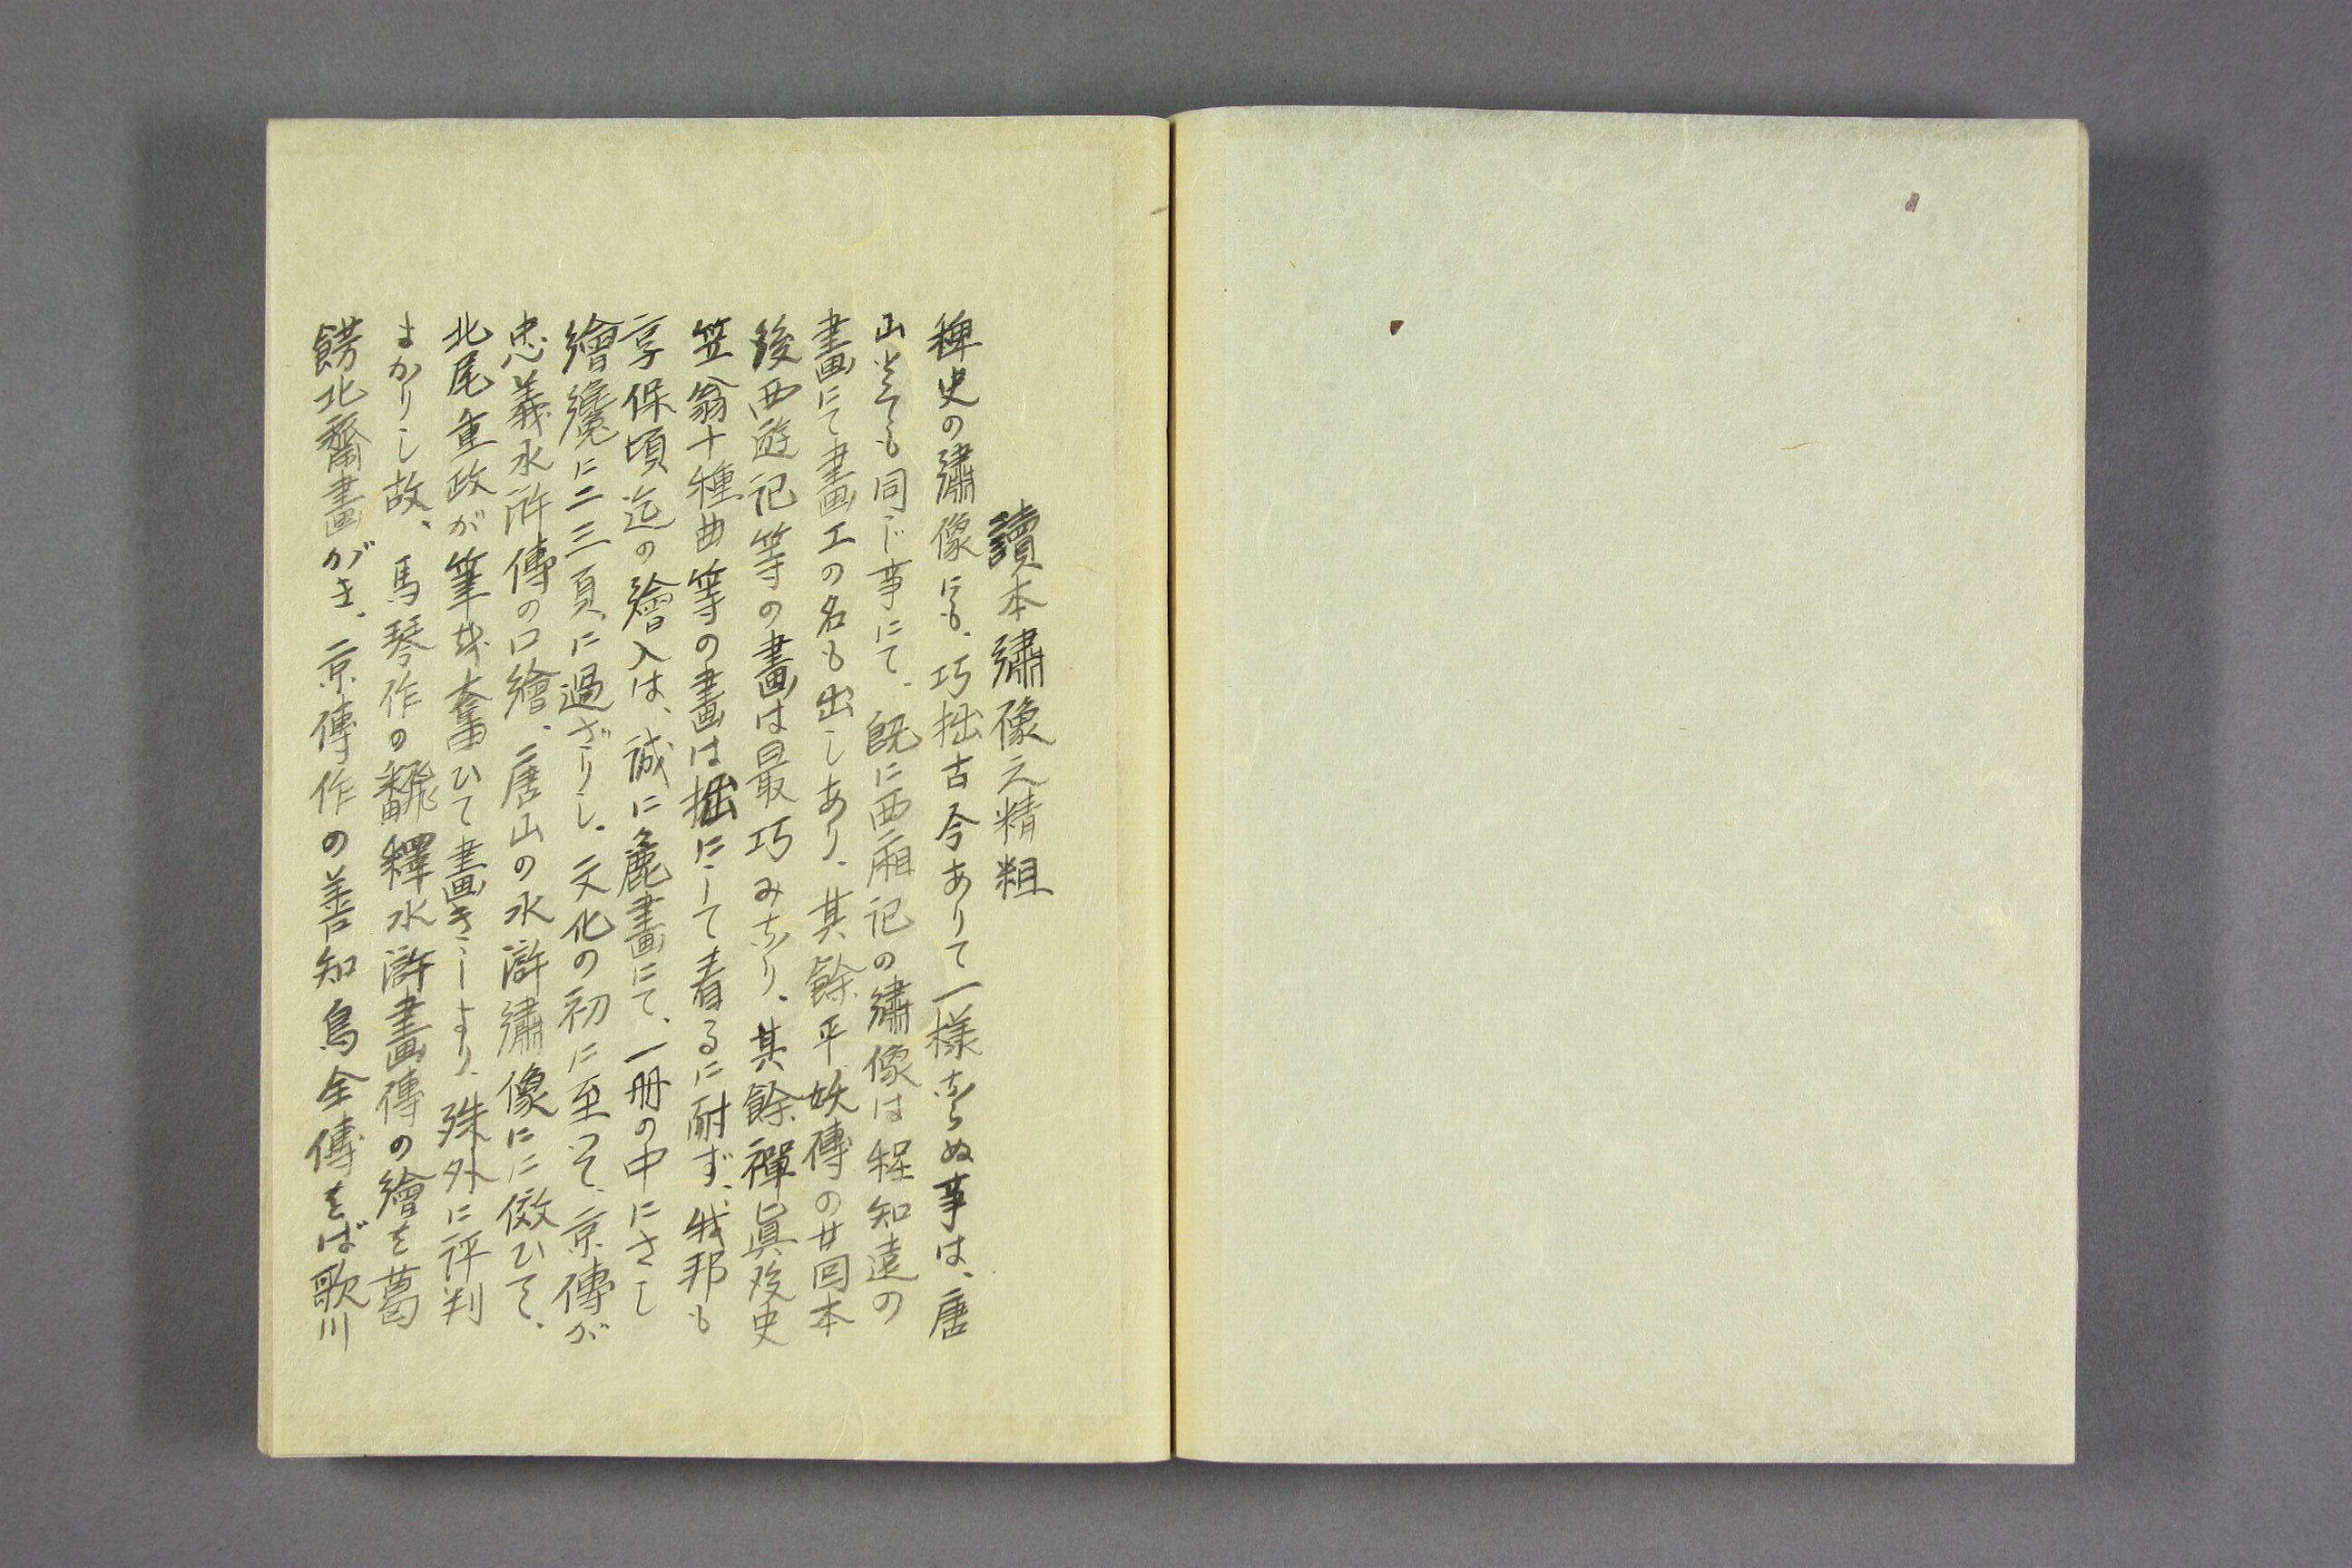 讀本繡像之精粗
稗史の繡像にも、巧拙古今ありて一樣ならぬ事は、唐
山とても同じ事にて、既に西廂記の繡像は程知遠の
畫にて畫工の名も出しあり、其餘平妖傳の廿回本
後西遊記等の畫は最巧みなり、其餘禪眞後史
笠翁十種曲等の畫は拙にして看るに耐ず、我邦も
享保頃迄の繪入は、誠に麁畫にて、一冊の中にさし
繪纔に二三頁に過ざりし、文化の初に至つて、京傳が
忠義水滸傳の口繪、唐山の水滸繡像にに傚ひて、
北尾重政が筆を奮ひて畫きしより、殊外に評判
よかりし故、馬琴作の飜釋水滸畫傳の繪を葛
餝北齋畫がき、京傳作の善知鳥全傳をば歌川